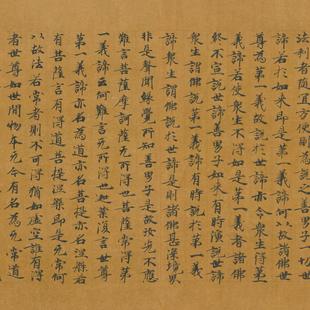 法利者随宜方便則為說之善男子一切世
諦若於如来即是第一義諦何以故諸佛世
尊為第一義故說於世諦亦令衆生得第一
義諦若使衆生不得如是第一義者諸佛
終不宣說世諦善男子如来有時演說世諦
衆生謂佛說第一義諦有時演說第一義
諦衆生謂佛說於世諦是則諸佛甚深境界
非是聲聞緣覺所知善男子是故汝先不應
難言菩薩摩訶薩无所得也菩薩常得第
一義諦云何難言无所得也迦葉復言世尊
第一義諦亦名為道亦名菩提亦名涅槃若
有菩薩言有得道菩提涅槃即是无常何
以故法若常者則不可得猶如虛空誰有得
者世尊如世間物本无今有名為无常道